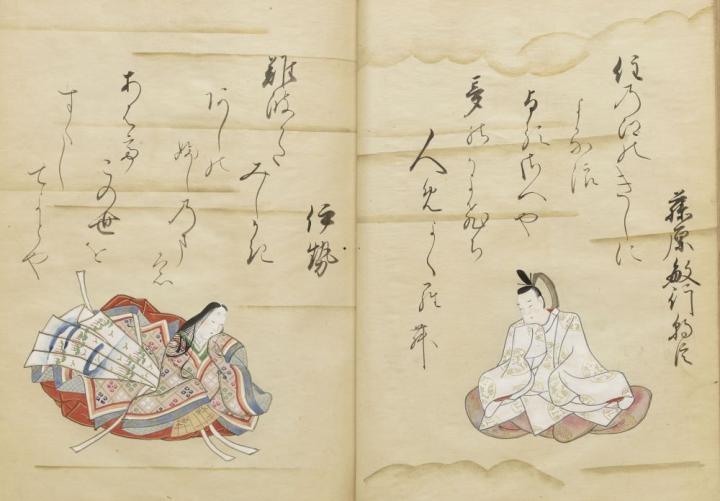 藤原敏行朝臣
住乃江のきしに
よる波
よるさへや
夢のかよひち
人めよくらむ
伊勢
難波かた
みしかき
あしの
ふしのま
も
あはて
この世を
すくし
てよとや